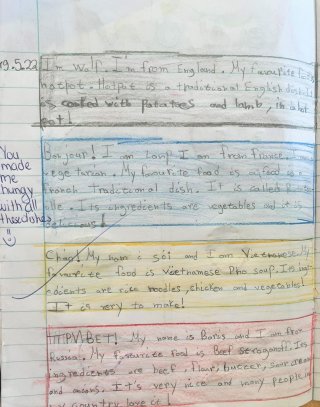 19.5.22
I'm Wolf. I'm from England. My favourite
hotpot. Hotpot is a traditional English dish. It
is cooked with potatoes and lamb, in a hot
pot!
You made me hungry with all those dishes
Bonjour! I am from France.
vegetarian. My favourite food is a
French traditional dish. It is called
Its ingredients are vegetables and it is
delicious!
Chao! My name is Sói and I am Vietnamese. My
favourite food is Vietnamese Pho soup. Its ingr-
edients are rice noodles, chicken and vegetables!
It is very to make!
ПРИВЕТ! My name is Boris and I am from
Russia. My favourite food is Beef stroganoff. Its
ingredients are beef, flour, butter, sour cream
and onions. It's very nice and many people in
my country love it!